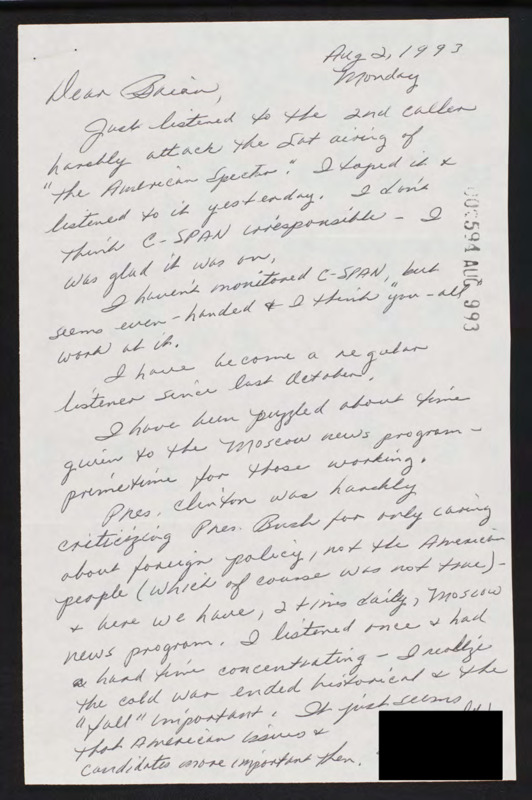 Aug 2, 1993
Monday
Dear Brian,
Just listened to the 2nd caller
harshly attack the Sat airing of
"the American Spectr." I taped it &
listened to it yesterday. I don't
think C-SPAN irresponsible - I
was glad it was on.
I haven't monitored C-SPAN, but
seems even-handed & I think "you-all"
work at it.
I have become a regular
listener since last October.
I have been puzzled about time
given to the Moscow news program -
primetime for those working.
Pres. Clinton was harshly
criticizing Pres. Bush for only caring
about foreign policy, not the American
people (which of course was not true) -
& here we have, 2 times daily, Moscow
news program. I listened once & had
a hard time concentrating - I realize
the cold war ended historical & the
"fall" important. It just seems
that American issues &
candidates more important then.
005594 AUG 993